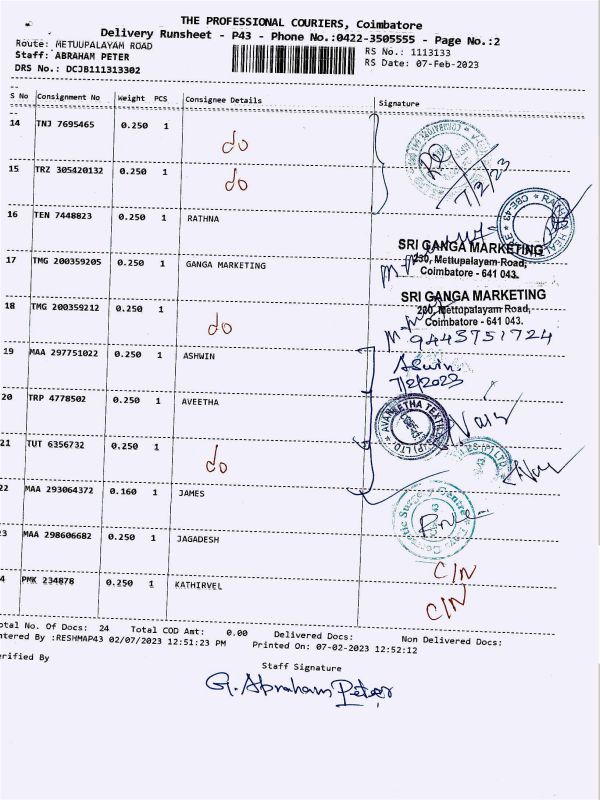 THE PROFESSIONAL COURIERS, Coimbatore
Delivery Runsheet - P43 - Phone No.:0422-3505555 - Page No.:2
Route: METUUPALAYAM ROAD
RS No.: 1113133
Staff: ABRAHAM PETER
RS Date: 07-Feb-2023
DRS No.: DCJB111313302
S No Consignment No Weight PCS Consignee Details Signature
14 TNJ 7695465 0.250 1 do
RG
7/2/23
15 TRZ 305420132 0.250 1 do
16 TEN 7448823 0.250 1 RATHNA
SRI GANGA MARKETING
230, Mettupalayam Road,
Coimbatore - 641 043.
17 TMG 200359205 0.250 1 GANGA MARKETING
SRI GANGA MARKETING
Mettupalayam Road,
Coimbatore - 641 043.
18 TMG 200359212 0.250 1 do
9443751724
19 MAA 297751022 0.250 1 ASHWIN
Aswin
7/2/2023
20 TRP 4778502 0.250 1 AVEETHA
21 TUT 6356732 0.250 1 do
22 MAA 293064372 0.160 1 JAMES
3 MAA 298606682 0.250 1 JAGADESH
C/N
4 PMK 234878 0.250 1 KATHIRVEL
C/N
otal No. Of Docs: 24 Total COD Amt: 0.00 Delivered Docs: Non Delivered Docs:
ntered By :RESHMAP43 02/07/2023 12:51:23 PM Printed On: 07-02-2023 12:52:12
erified By
Staff Signature
G. Abraham Peter